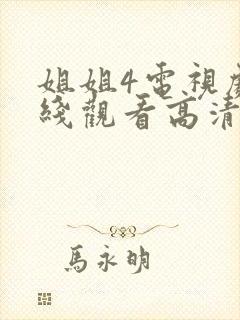 姐姐4電視
綫觀看高清
馬永明